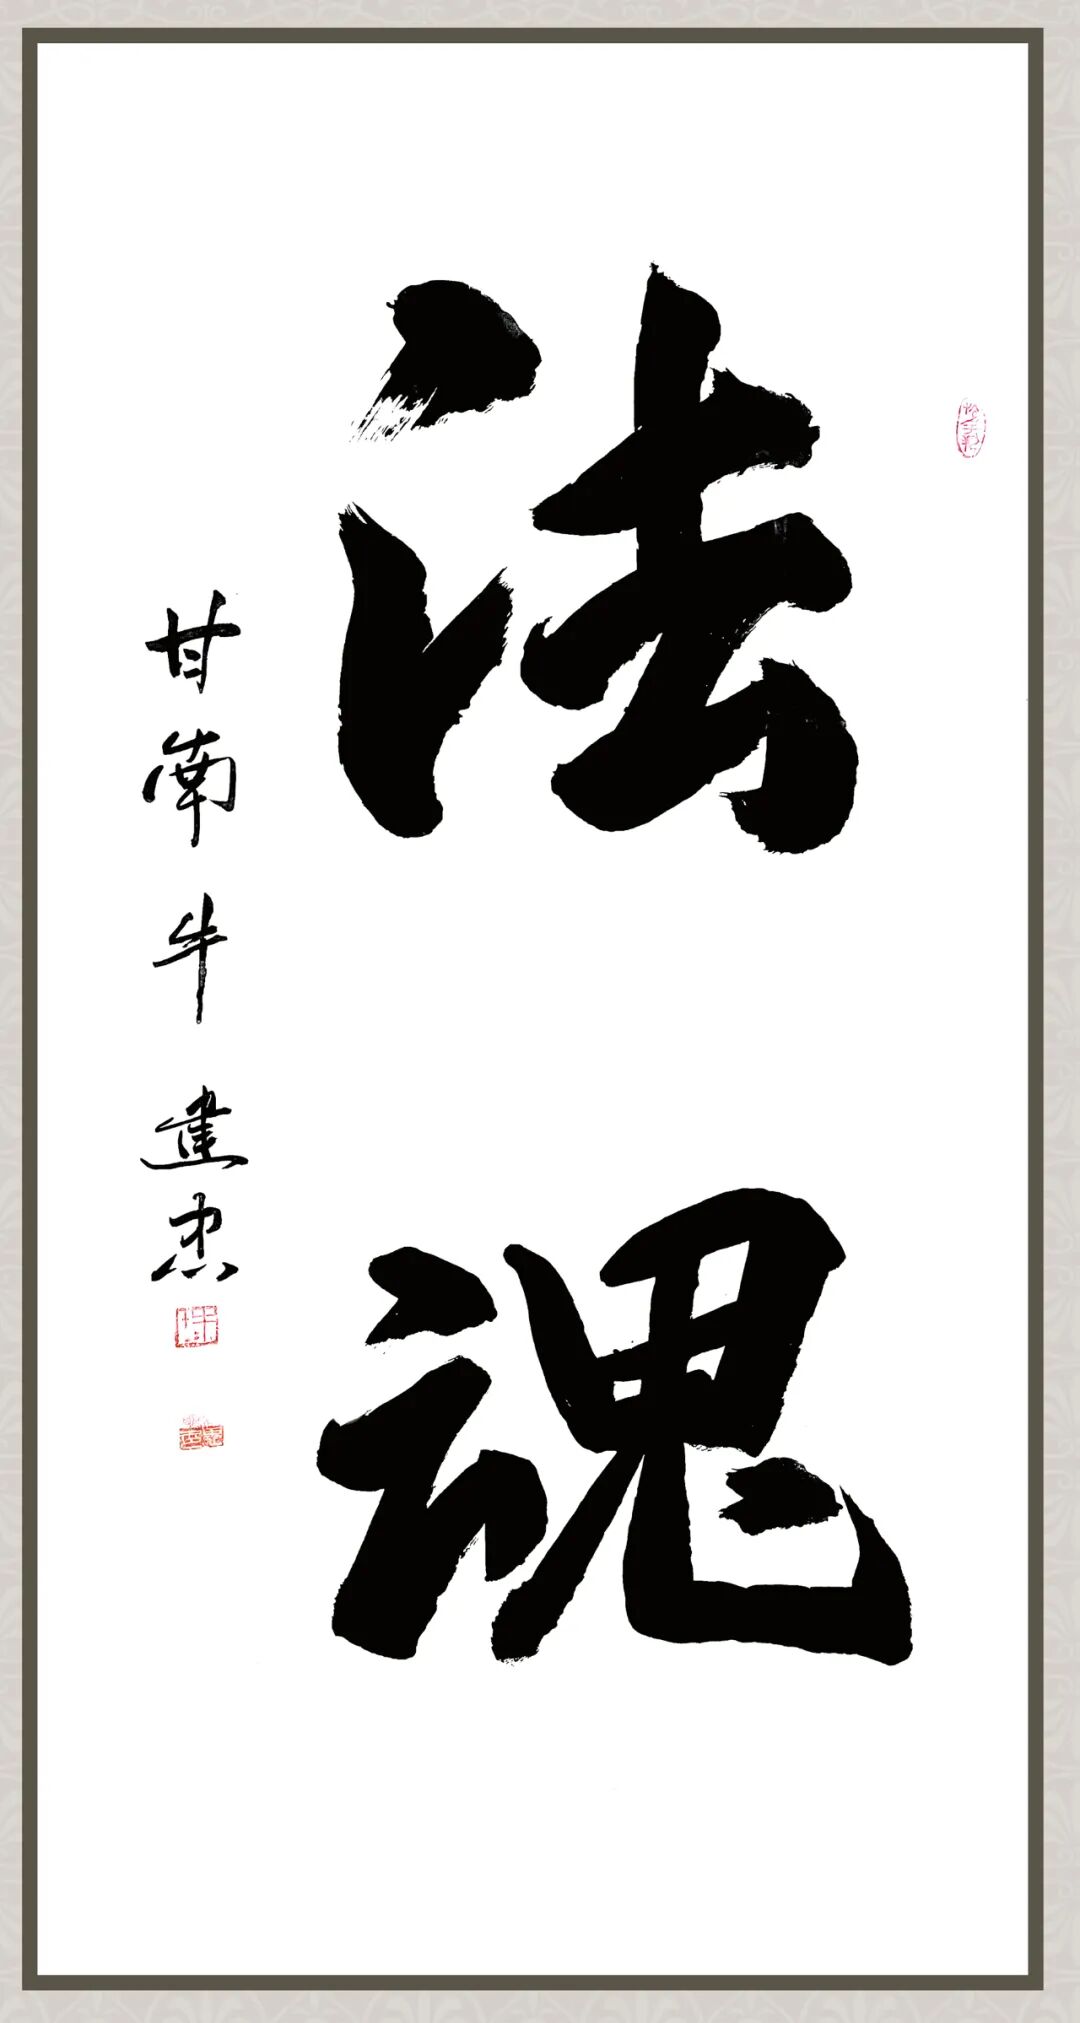 法魂
甘南牛建忠